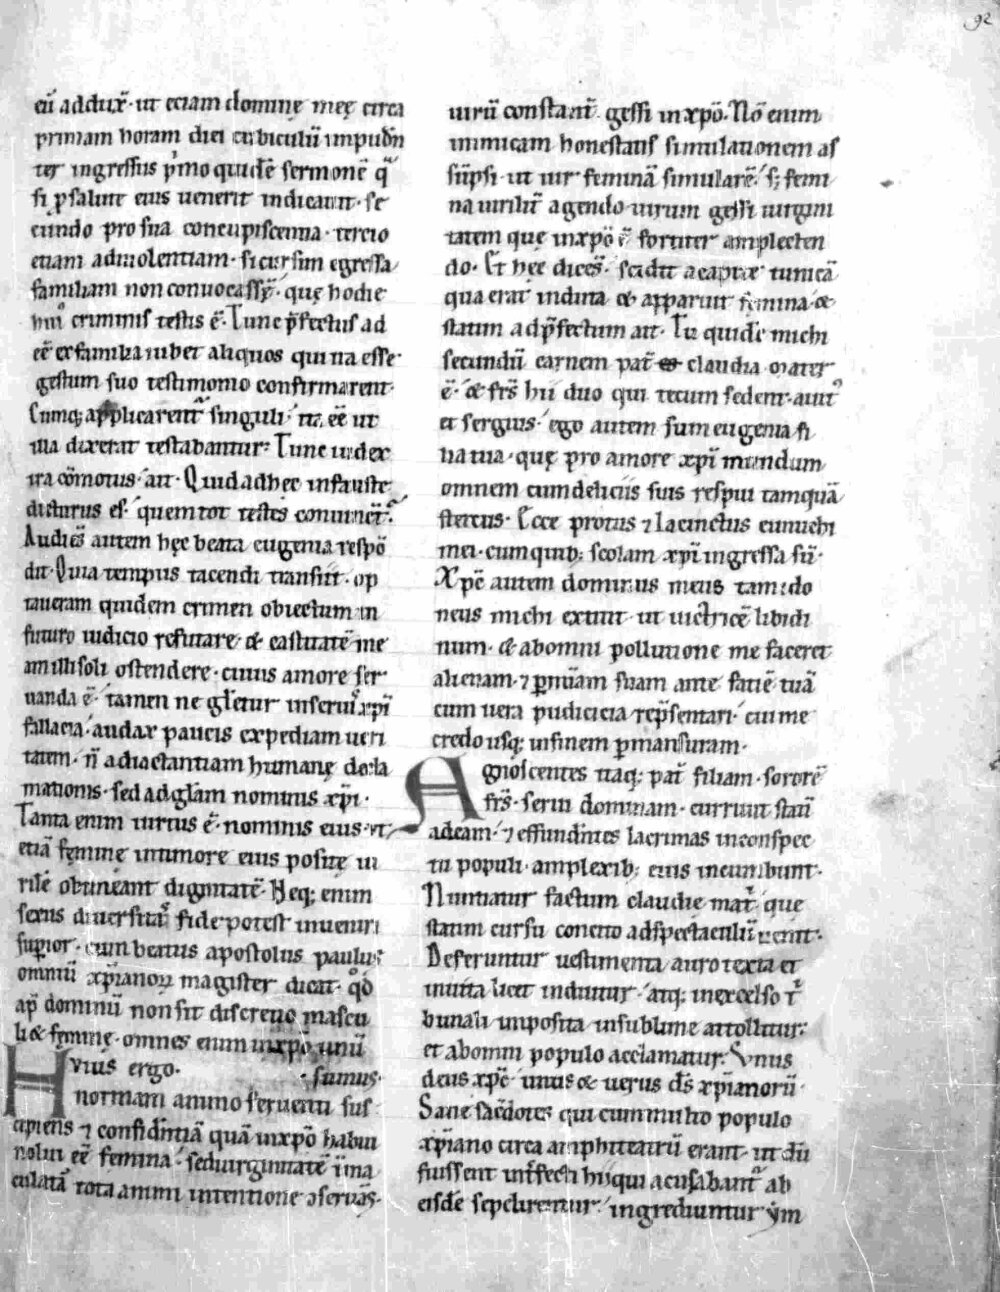 92
eū adduxˉ· ut etiam dominę meę circa
primam horam diei cubiculū impudn̄
ter ingressus pͥmo quidē sermonē qͣ
si psalmr̄ eius uenerit indicauit· se
cundo pro sua concupiscentia· tercio
etiam aduiolentiam· si cursim egressa
familiam non conuocassē· quę hodie
huiꝰ criminis testis ē· Tunc p̄fectus ad
eē ex familia iubet aliquos qui na esse·
gestum suo testimonio confirmarent·
Cumq; applicarent̄ singuli· ita eē ut
illa dixerat testabantur· Tunc iudex
ira cōmotus· ait· Quid adhec infauste
dicturus es· quem tot testes conuincēt·
Audiēs autem hęc beata eugenia respō
dit· Quia tempus tacendi transiit· op
taueram quidem crimen obiectum in
futuro iudicio refutare & castitatē me
am illi soli ostendere· cuius amore ser
uanda ē· tamen ne gl̄etur in seruis xp̄i
fallacia· audax paucis expediam ueri
tatem· n̄ ad iactantiam humanę decla
mationis· sed ad gl̄am nominis xp̄i·
Tanta enim uirtus ē· nominis eius· ut
etiā feminę in timore eius positę ui
rilē obtineant dignitatē· Neq; enim
sexus diuersitas fide potest inueniri
supior· cum beatus apostolus paulus
omniū xp̄ianoꝝ magister dicat· qͦd
ap̄ dominū non sit discretio mascu
li & feminę· omnes enim in xp̄o unū
Huius ergo. · sumus·
normam animo feruenti sus
cipiens ⁊ confidn̄tiā quā in xp̄o habui
nolui eē femina· sed uirginitatē īma
culatā tota animi intentione ɔseruās·
uirū constant̄ gessi in xp̄o· Nō enim
inimicam honestatis simulationem as
sūpsi· ut uir feminā simularē· s; femi
na uirilit̄ agendo uirum gessi uirgini
tatem que in xp̄o ē fortiter amplecten
do· Et hęc dicēs· scidit a capite tunicā
qua erat induta & apparuit femina &
statim ad p̄fectum ait· Tu quidē michi
secundū carnem pat̄ es claudia mater
ē· & fr̄s hii duo qui tecum sedent· auitꝰ
et sergius· ego autem sum eugenia fi
lia tua· quę pro amore xp̄i mundum
omnem cum deliciis suis respui tamquā
stercus· Ecce protus ⁊ Iacinctus eunuchi
mei· cum quib; scolam xp̄i ingressa sū·
Xp̄c autem dominus meus tam ido
neus michi extitit· ut uictricē libidi
num· & ab omni pollutione me faceret
alienam· ⁊ p nūam suam ante faciē tuā
cum uera pudicicia rep̄sentari· cui me
credo usq; in finem pmansuram·
Agnoscentes itaq; pat̄ filiam· sororē
fr̄s· serui dominam· currunt statī
ad eam· ⁊ effundn̄tes lacrimas in conspec
tu populi· amplexib; eius incumbunt·
Nuntiatur factum claudie mat̄ que
statim cursu concito ad spectaculū uenit·
Deferuntur uestimenta auro texta et
inuita licet induitur· atq; in excelso tͥ
bunali imposita in sublime attollitur·
et ab omni populo acclamatur· Vnus
deus xp̄c· unus & uerus ds̄ xp̄ianorū·
Sane sac̄dotes qui cum multo populo
xp̄iano circa amphiteatrū erant· ut dū
fuissent int̄fecti hii qui acusabant̄ ab
eisdē sepelirentur· ingrediuntur ẏm